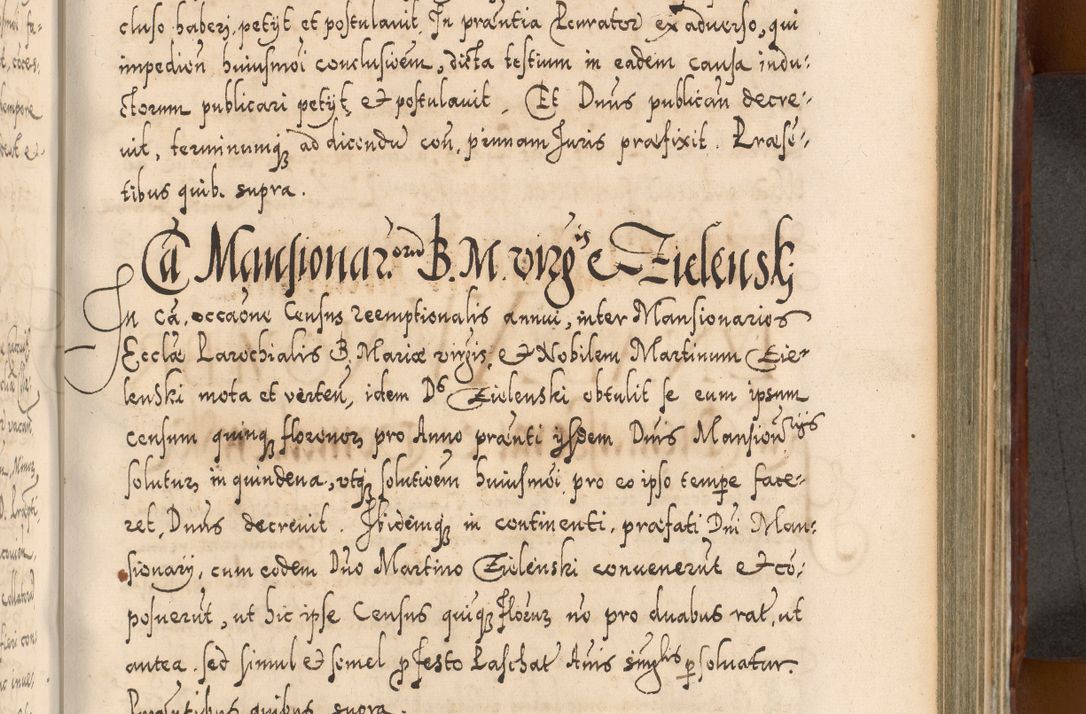 cluso haberi, petyt et postulauit. In praesentia Procurator ex aduerso, qui
impedion huiusmoi conclusioem, dicta testium in eadem causa indu-
ctorum publicari petyt et postulauit. Et Dnus publicari decre-
uit, terminumq ad dicendu con. primam Juris praefixit. Praese-
tibus quib. supra.
Ca Mansionar.orum B. M. virg.is e Zielenskj
In ca, occaone Census reemptionalis annui, inter Mansionarios
Ecclae Parochialis B. Mariae virgis, et Nobilem Martinum Zie-
lenski mota et verten, idem Ds Zielenski obtulit se eum ipsum
censum quinq florenor, pro Anno praesenti ysdem Dnis Mansion.rijs
soluturu, in quindena, vtq solutioem huiusmoi pro eo ipso tempe face-
ret, Dnus decreuit. Ibidemq in continenti, praefati Dni Man-
sionarij, cum eodem Dno Martino Zielenski conuenerut et co-
posuerut, ut hic ipse Census quiq Floru no pro duabus rat, ut
antea, sed simul et semel p festo Paschat Anis singlis psoluatur.
Praesentibus quibus supra.